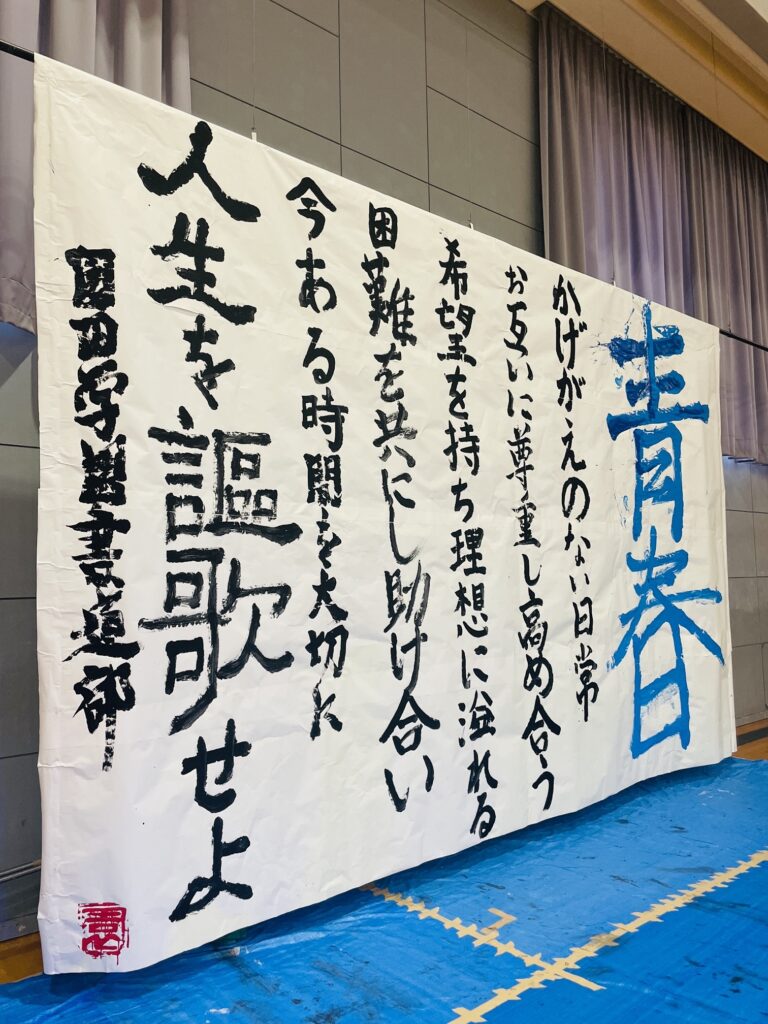 青春
かげがえのない日常
お互いに尊重し高め合う
希望を持ち理想に溢れる
困難を共にし助け合い
今ある時間を大切に
人生を謳歌せよ
園田学園書道部